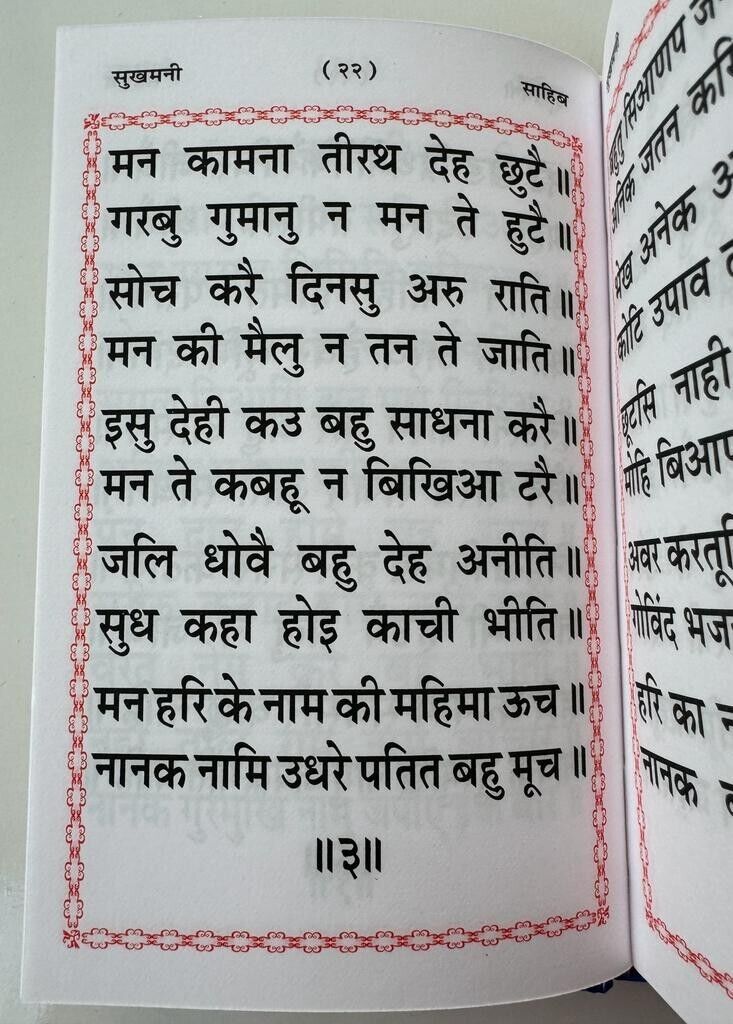 सुखमनी
(२२)
साहिब
मन कामना तीरथ देह छुटै॥
गरबु गुमानु न मन ते हुटै॥
सोच करै दिनसु अरु राति॥
मन की मैलु न तन ते जाति॥
इसु देही कउ बहु साधना करै॥
मन ते कबहू न बिखिआ टरै॥
जलि धोवै बहु देह अनीति॥
सुध कहा होइ काची भीति॥
मन हरि के नाम की महिमा ऊच॥
नानक नामि उधरे पतित बहु मूच॥
॥३॥
सिआणप
जतन
भेख अनेक
कोटि उपाव
छूटसि नाही
मोहि
अवर
गोविंद
हरि का
नानक